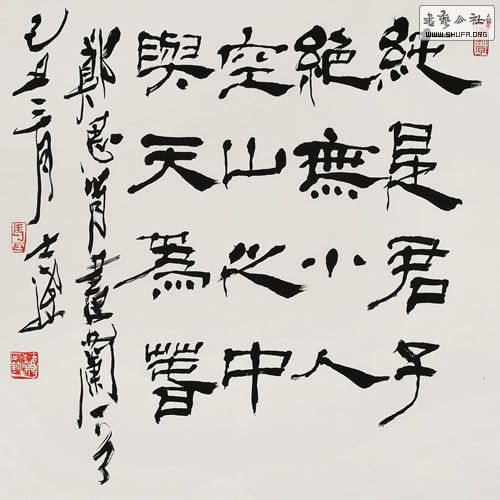 純是君子
絕無小人
空山之中
與天為萅
鄭思肖畫蘭
己丑三月
书艺公社
WWW.SHUFA.ORG